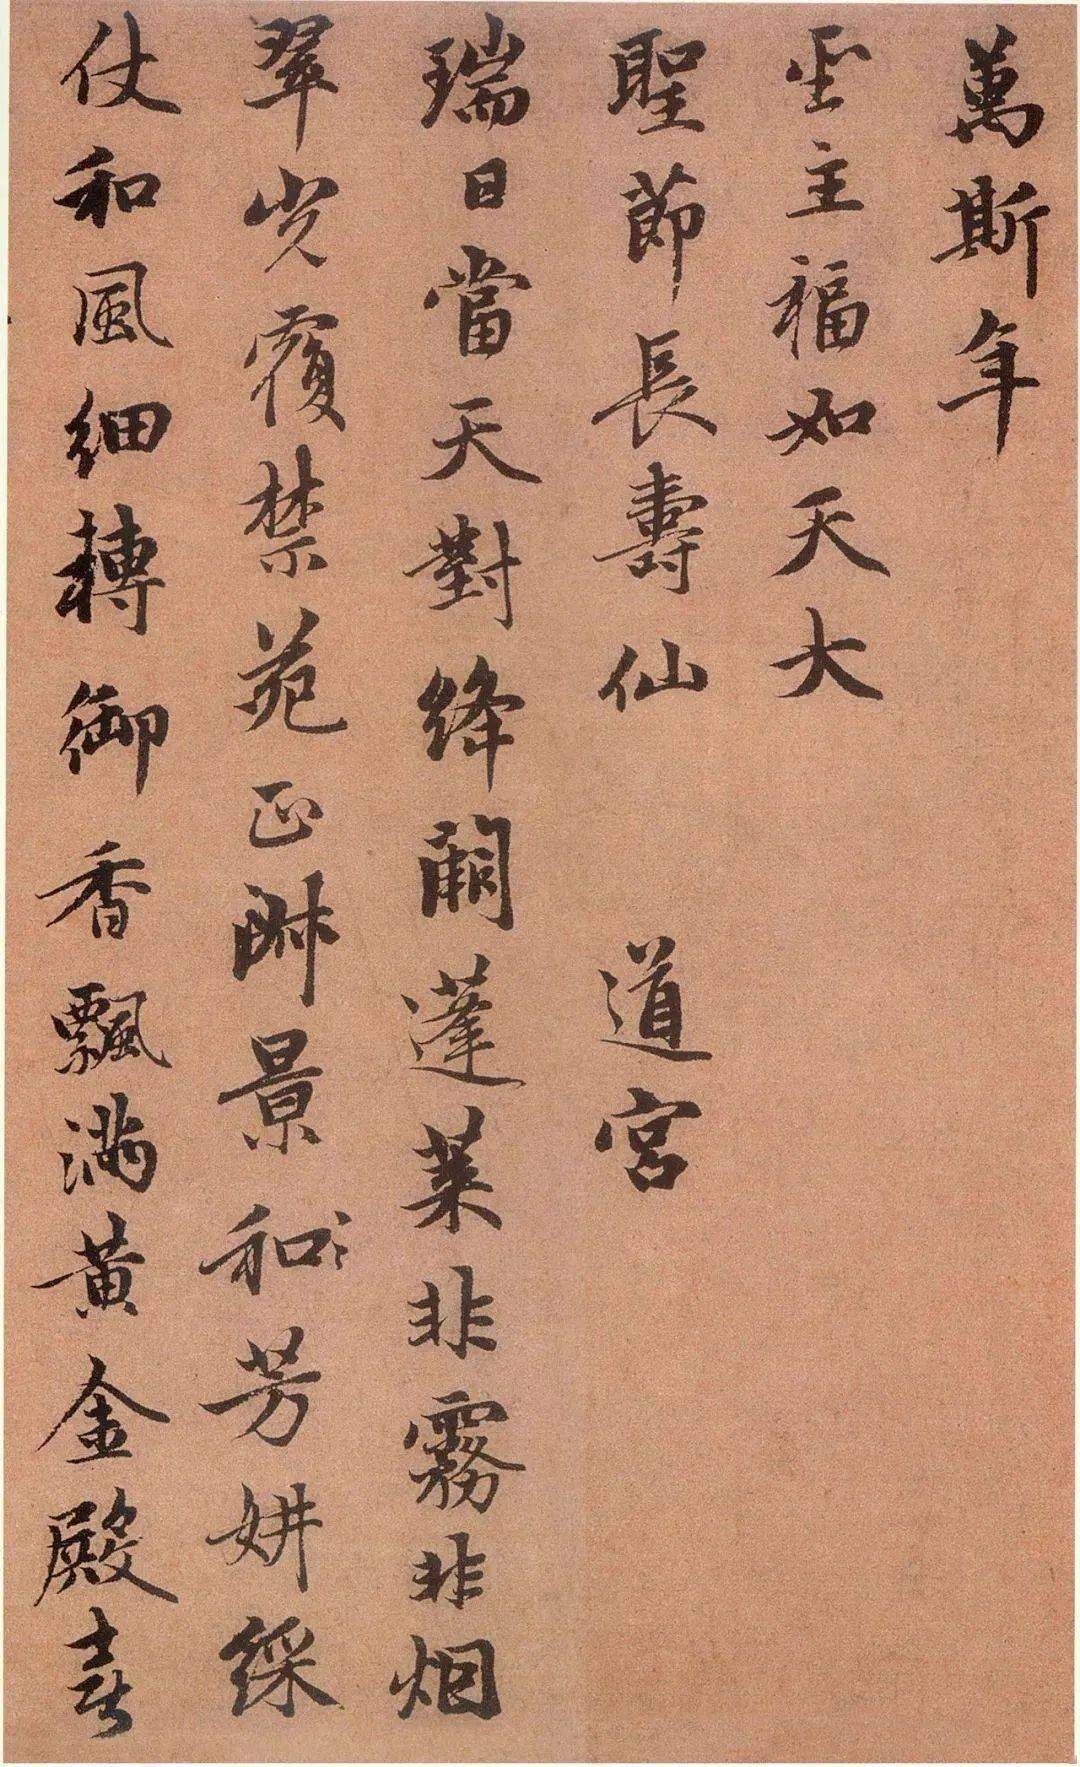 萬斯年
聖主福如天大
聖節長壽仙 道宮
瑞日當天對絳闕蓬萊非霧非烟
翠光覆禁苑正淑景和芳妍綵
仗和風細轉御香飄滿黃金殿喜